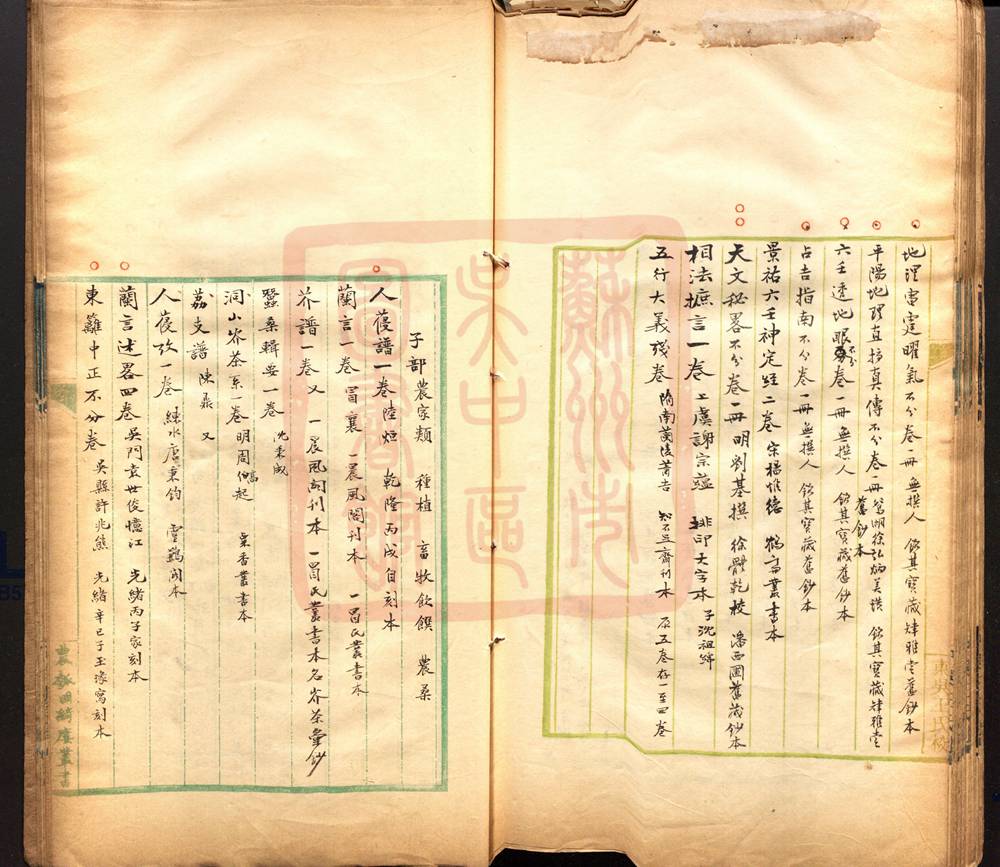 地理雷霆曜氣不分卷一冊 無撰人 銘其寶藏肄雅堂舊鈔本
平陽地理直接真傳不分卷一冊 明徐弘炯美璞 銘其寶藏肄雅堂舊鈔本
六壬透地眼不分卷一冊 無撰人 銘其寶藏舊鈔本
占吉指南不分卷一冊 無撰人 銘其寶藏舊鈔本
景祐六壬神定經二卷 宋楊惟德 鶴齋叢書本
天文秘畧不分卷一冊 明劉基撰 徐體乾校 潘西圃舊藏鈔本
相法摭言一卷 上虞謝宗蕴 排印大字本 子沈祖緜
五行大義殘卷 隋南蘭陵蕭吉 知不足齋刊本 原五卷存一至四卷
子部農家類 種植 畜牧飲饌 農桑
人葠譜一卷 陸烜 乾隆丙戌自刻本
蘭言一卷 冒襄 一晨風閣刊本 一冒氏叢書本
芥譜一卷 又 一晨風閣刊本 一冒氏叢書本名岕茶彙鈔
蠶桑輯要一卷 沈秉成
洞山岕茶系一卷 明周伯高起 粟香叢書本
荔支譜 陳鼎 又
人葠攷一卷 練水唐秉鈞 雪鵝閣本
蘭言述畧四卷 吳門袁世俊憶江 光緒丙子家刻本
東籬中正不分卷 吳縣許兆熊 光緒辛巳子玉瑑寫刻本
蘇州市
吳中區
圖書館